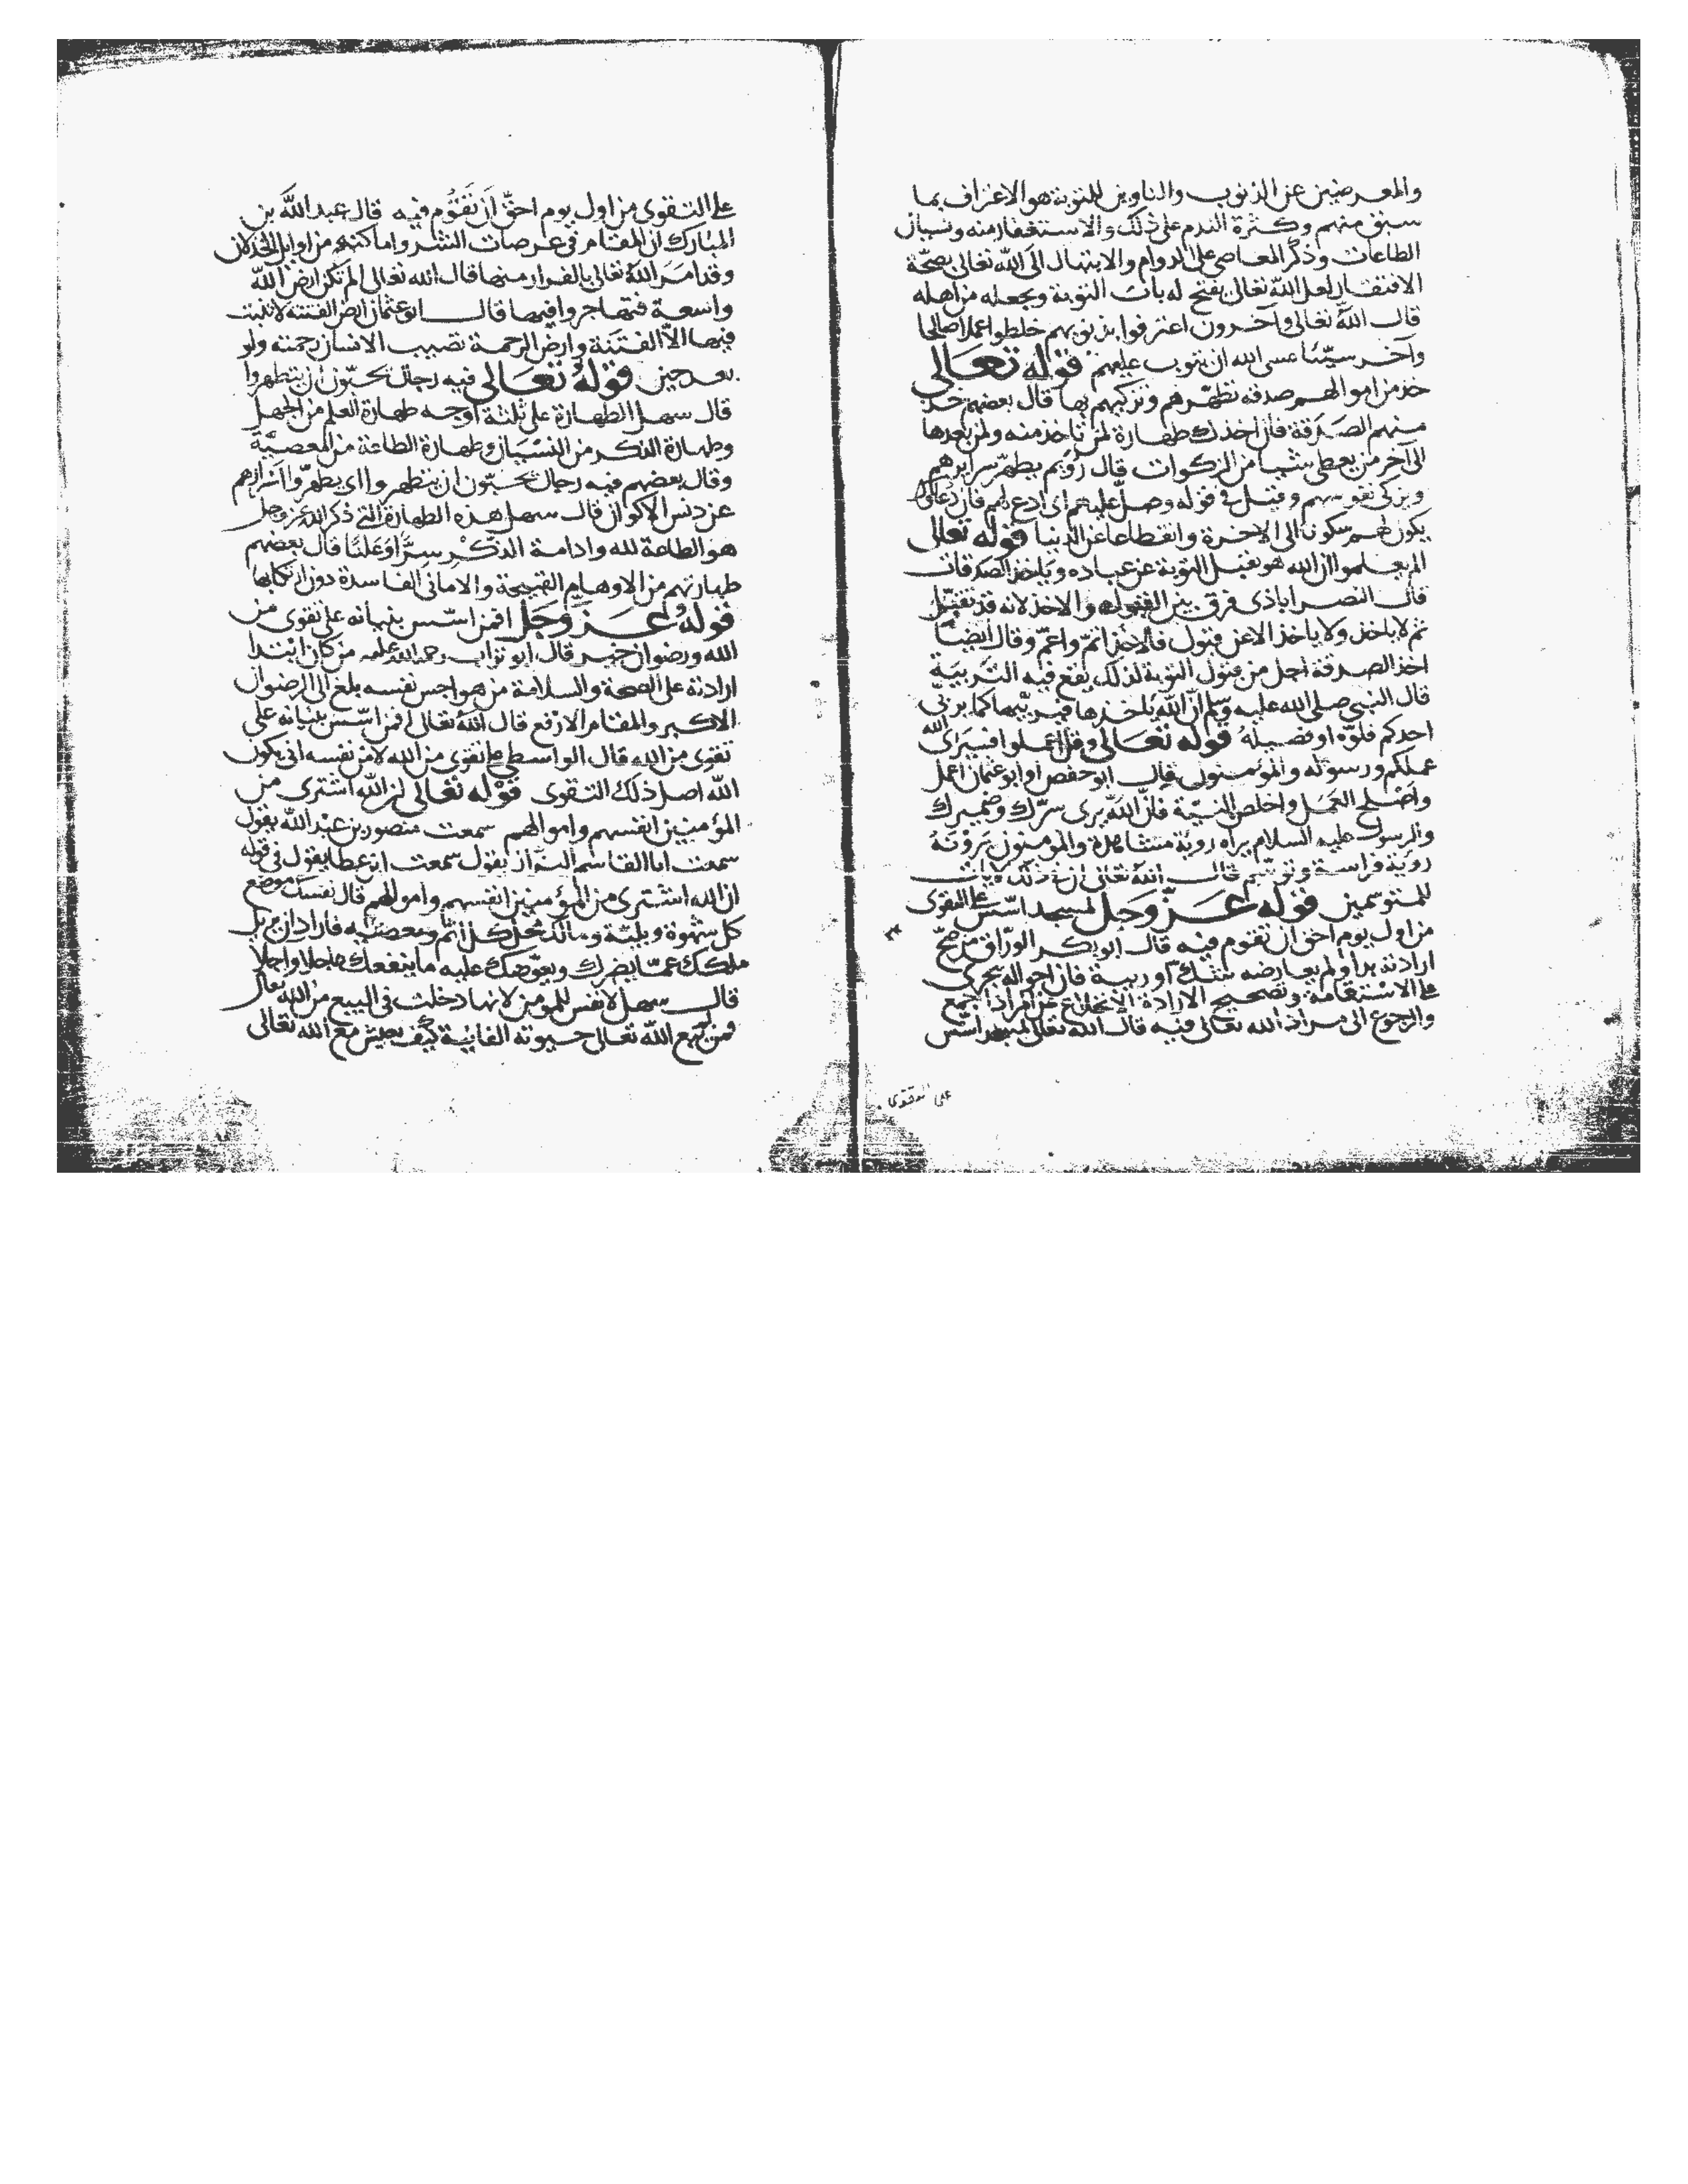 والمعرضين عن الذنوب والناوين للتوبة هو الاعتراف بما
سبق منهم وكثرة الندم على ذلك والاستغفار منه ونسيان
الطاعات وذكر المعاصي على الدوام والابتهال الى الله تعالى بصحة
الافتقار لعل الله تعالى يفتح له باب التوبة ويجعله من اهله
قال الله تعالى وآخرون اعترفوا بذنوبهم خلطوا عملا صالحا
وآخر سيّئا عسى الله ان يتوب عليهم قوله تعالى
خذ من اموالهم صدقة تطهّرهم وتزكيهم بها قال بعضهم خذ
منهم الصدقة فان اخذك طهارة لمن تاخذ منه ولمن بعدها
الى آخر من يعطى شيا من الزكوات قال رُوَيم يطهّر سرايرهم
ويزكى نفوسهم وقيل في قوله وصلّ عليهم اى ادع لهم فان دعاك
يكون لهم سكونا الى الاخرة وانقطاعا عن الدنيا قوله تعالى
الم يعلموا ان الله هو يقبل التوبة عن عباده وياخذ الصدقات
قال النصراباذى فرق بين القبول والاخذ لانه قد تقبّل
ثم لا ياخذ ولا ياخذ الا عن قبول فالاخذ اتمّ واعمّ وقال ايضا
اخذ الصدقة اجل من قبول التوبة لذلك يقع فيه التربية
قال النبي صلى الله عليه وسلم ان الله ياخذها فيربّيها كما يربّى
احدكم فلوّه او فصيله قوله تعالى وقل اعملوا فسيرى الله
عملكم ورسوله والمؤمنون قال ابو حفص او ابو عثمان اعمل
واصلح العمل واخلص النيّة فانّ الله يرى سرّك وضميرك
والرسول عليه السلام يراه روية مشاهدة والمؤمنون يرونه
روية فراسة وتوسّم قال الله تعالى ان في ذلك لايات
للمتوسمين قوله عزّ وجل لمسجد اسّس على التقوى
من اول يوم احق ان تقوم فيه قال ابو بكر الورّاق من صحّ
ارادته بدا ولم يعارضه شك او ريبة فان احواله تجرى
على الاستقامة وتصحيح الارادة الانخلاع عن مراد الجمع
والرجوع الى مراد الله تعالى فيه قال الله تعالى لمسجد اسّس
على التقوى
على التقوى من اول يوم احقّ ان تقوم فيه قال عبد الله بن
المبارك ان المقام في عرصات الشر واماكنه من اوايل الخذلان
وقد امر الله تعالى بالفرار منها قال الله تعالى الم تكن ارض الله
واسعة فتهاجروا فيها قال ابو عثمان ارض الفتنة لا تنبت
فيها الا الفتنة وارض الرحمة تصيب الانسان رحمته ولو
بعد حين قوله تعالى فيه رجال يحبّون ان يتطهروا
قال سهل الطهارة على ثلثة اوجه طهارة العلم من الجهل
وطهارة الذكر من النسيان وطهارة الطاعة من المعصية
وقال بعضهم فيه رجال يحبّون ان يتطهروا اى يطهّروا اسرارهم
عن دنس الاكوان قال سهل هذه الطهارة التي ذكر الله عز وجل
هو الطاعة لله وادامة الذكر سرّا وعلنا قال بعضهم
طهارتهم من الاوهام القبيحة والاماني الفاسدة دون ارتكابها
قوله عزّ وجلّ افمن اسّس بنيانه على تقوى من
الله ورضوان خير قال ابو تراب رحمة الله عليه من كان ابتدا
ارادته على الصحة والسلامة من هواجس نفسه بلغ الى الرضوان
الاكبر والمقام الارفع قال الله تعالى افمن اسّس بنيانه على
تقوى من الله قال الواسطي على تقوى من الله لا من نفسه اى يكون
الله اصل ذلك التقوى قوله تعالى ان الله اشترى من
المؤمنين انفسهم واموالهم سمعت منصور بن عبد الله يقول
سمعت ابا القاسم البزّاز يقول سمعت ابن عطا يقول في قوله
ان الله اشترى من المؤمنين انفسهم واموالهم قال نفسك موضع
كل شهوة وبليّة ومالك محل كل اثم ومعصية فاراد ان يزيل
ملكك عمّا يضرك ويعوّضك عليه ما ينفعك عاجلا واجلا
قال سهل لا نفس للمومن لانها دخلت في البيع من الله تعالى
فمن لم يبع الله تعالى حيوته الفانية كيف يعيش مع الله تعالى